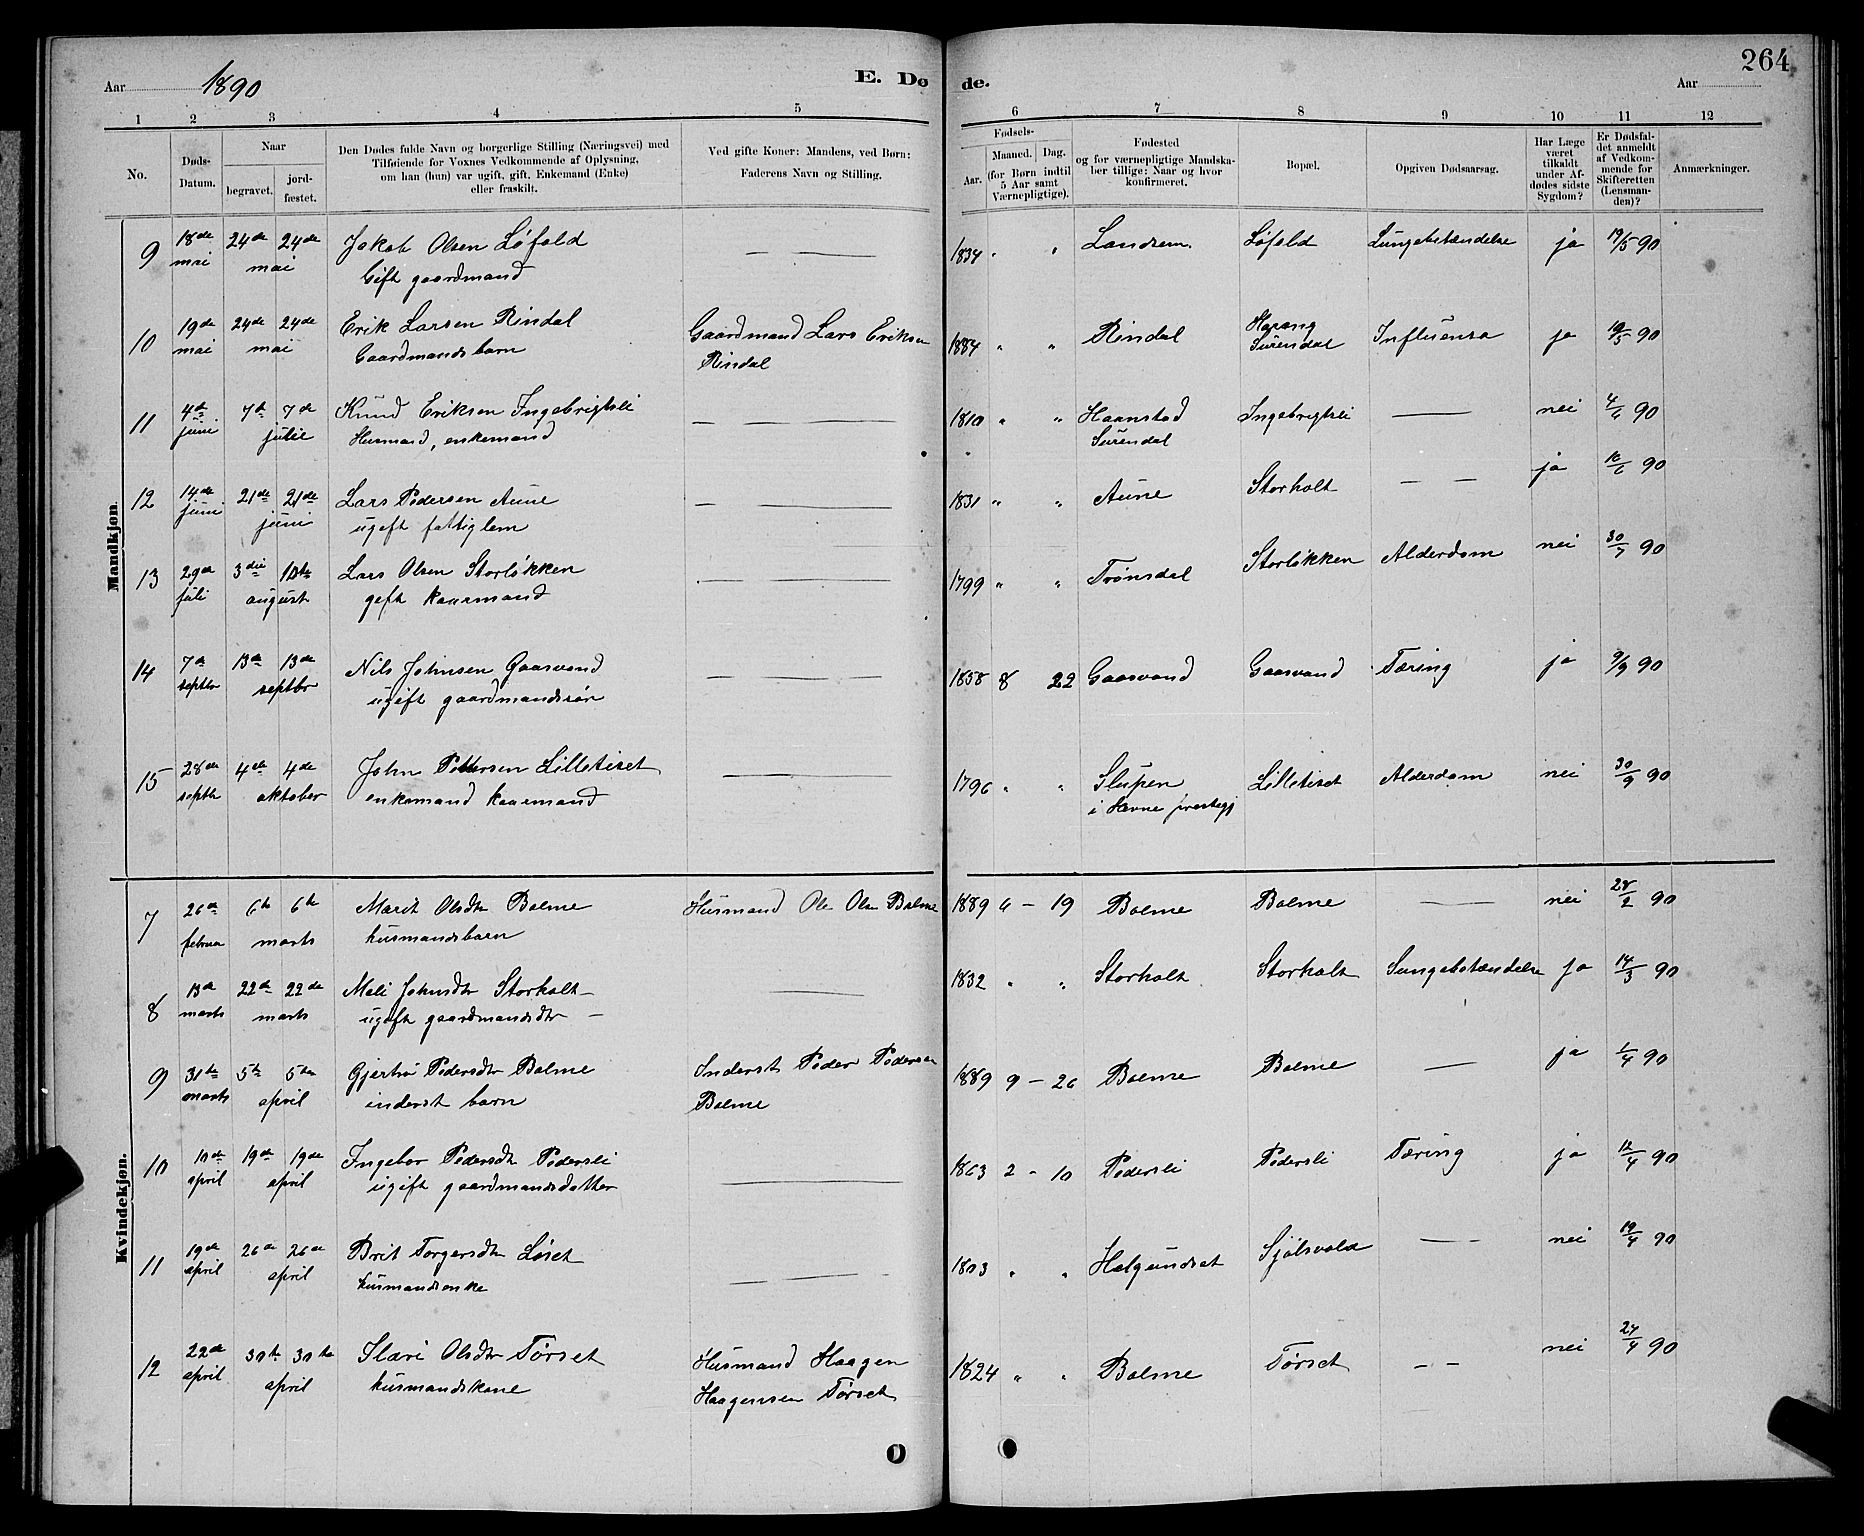 264
Aar 1890
E. Dø
de.
Aar
1 2 3 4 5 6 7 8 9 10 11 12
No.
Døds-
Datum.
Naar
begravet.
jord-
fæstet.
Den Dødes fulde Navn og borgerlige Stilling (Næringsvei) med
Tilføiende for Voxnes Vedkommende af Oplysning,
om han (hun) var ugift, gift, Enkemand (Enke)
eller fraskilt.
Ved gifte Koner: Mandens, ved Børn:
Faderens Navn og Stilling.
Fødsels-
Aar.
Maaned. Dag.
(for Børn indtil
5 Aar samt
Værnepligtige).
Fødested
og for værnepligtige Mandska-
ber tillige: Naar og hvor
konfirmeret.
Bopæl.
Opgiven Dødsaarsag.
Har Læge
været
tilkaldt
under Af-
dødes sidste
Sygdom?
Er Dødsfal-
det anmeldt
af Vedkom-
mende for
Skifteretten
(Lensman-
den)?
Anmærkninger.
Mandkjøn.
9 18de 24de 24de Jakob Olsen Løfald — — 1834 " " Landsem Løfald Lungebetændelse ja 19/5 90
mai mai Gift gaardmand
10 19de 24de 24de Erik Larsen Rindal Gaardmand Lars Eriksen 1884 " " Rindal Harang Influensa ja 19/5 90
mai mai Gaardmandsbarn Rindal Surendal
11 4de 7de 7de Knud Eriksen Ingebrigtsli — — 1810 " " Haanstad Ingebrigtsli — nei 4/6 90
juni julie Husmand, enkemand Surendal
12 14de 21de 21de Lars Pedersen Aune — — 1831 " " Aune Storholt — — ja 16/6 90
juni juni ugift fattiglem
13 29de 3die 10de Lars Olsen Storløkken — — 1799 " " Trønsdal Storløkken Alderdom nei 30/7 90
juli august gift kaarmand
14 7de 13de 13de Nils Johnsen Gaasvand — — 1858 8 22 Gaasvand Gaasvand Tæring ja 9/9 90
septbr septbr ugift gaardmandssøn
15 28de 4de 4de John Pettersen Lilletiset — — 1796 " " Slupen Lilletiset Alderdom nei 30/9 90
septbr oktober enkemand kaarmand i Hevne prestegj
Kvindekjøn.
7 26de 6te 6te Marit Olsdtr Bolme Husmand Ole Olsen Bolme 1889 6 – 19 Bolme Bolme — nei 28/2 90
februar marts husmandsbarn
8 13de 22de 22de Mali Johnsdtr Storholt — 1832 " " Storholt Storholt Lungebetændelse ja 14/3 90
marts marts ugift gaardmandsdtr —
9 31te 5te 5te Gjertru Pedersdtr Bolme Inderst Peder Pedersen 1889 9 – 26 Bolme Bolme — ja 1/4 90
marts april inderst barn Bolme
10 10de 19de 19de Ingebor Pedersdtr Pedersli — 1863 2 – 10 Pedersli Pedersli Tæring ja 12/4 90
april april ugift gaardmandsdatter
11 19de 26de 26de Brit Torgersdtr Løset — — 1803 " " Helgundset Sjølsvold — - nei 19/4 90
april april husmandsenke
12 22de 30te 30te Slari Olsdtr Tørset Husmand Haagen 1824 " " Bolme Tørset — — nei 24/4 90
april april husmandskone Haagensen Tørset